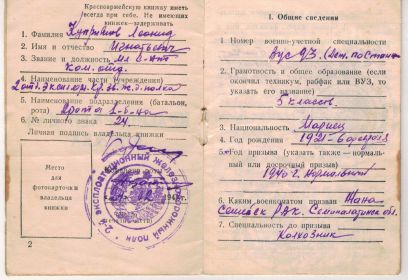 Красноармейскую книжку иметь
всегда при себе. Не имеющих
книжек—задерживать
1. Фамилия Куприков Леонид
2. Имя и отчество Игнатьевич
3. Звание и должность мл. с-нт
Ком. отд.
4. Наименование части (учреждения)
2 отд. ж.д. полка
5. Наименование подразделения (батальон,
рота) Рота
6. № личного знака 24.
Личная подпись владельца книжки
Место
фотокарточки
владельца
книжки
эксплоатационный железнодорожный полк
2
I. Общие сведения
1. Номер военно-учетной специальности
Вус
2. Грамотность и общее образование (если
окончил техникум, рабфак или ВУЗ, то
указать его название)
5 классов.
3. Национальность Мариец
4. Год рождения 1921
5. Год призыва (указать также — нормаль-
ный или досрочный призыв)
1940 г. Нормальный
6. Каким военкоматом призван Жана
Семейск РВК. Семипалатинск обл.
7. Специальность до призыва
Колхозник
3